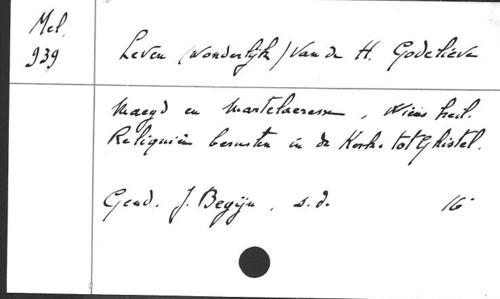 Mel.
939
Leven (wonderlijk) van de H. Godelieve
Maegd en Martelaeresse, Wiens heil.
Reliquiën berusten in de Kerke tot Ghistel.
Gend. J. Begijn, s.d. 16°